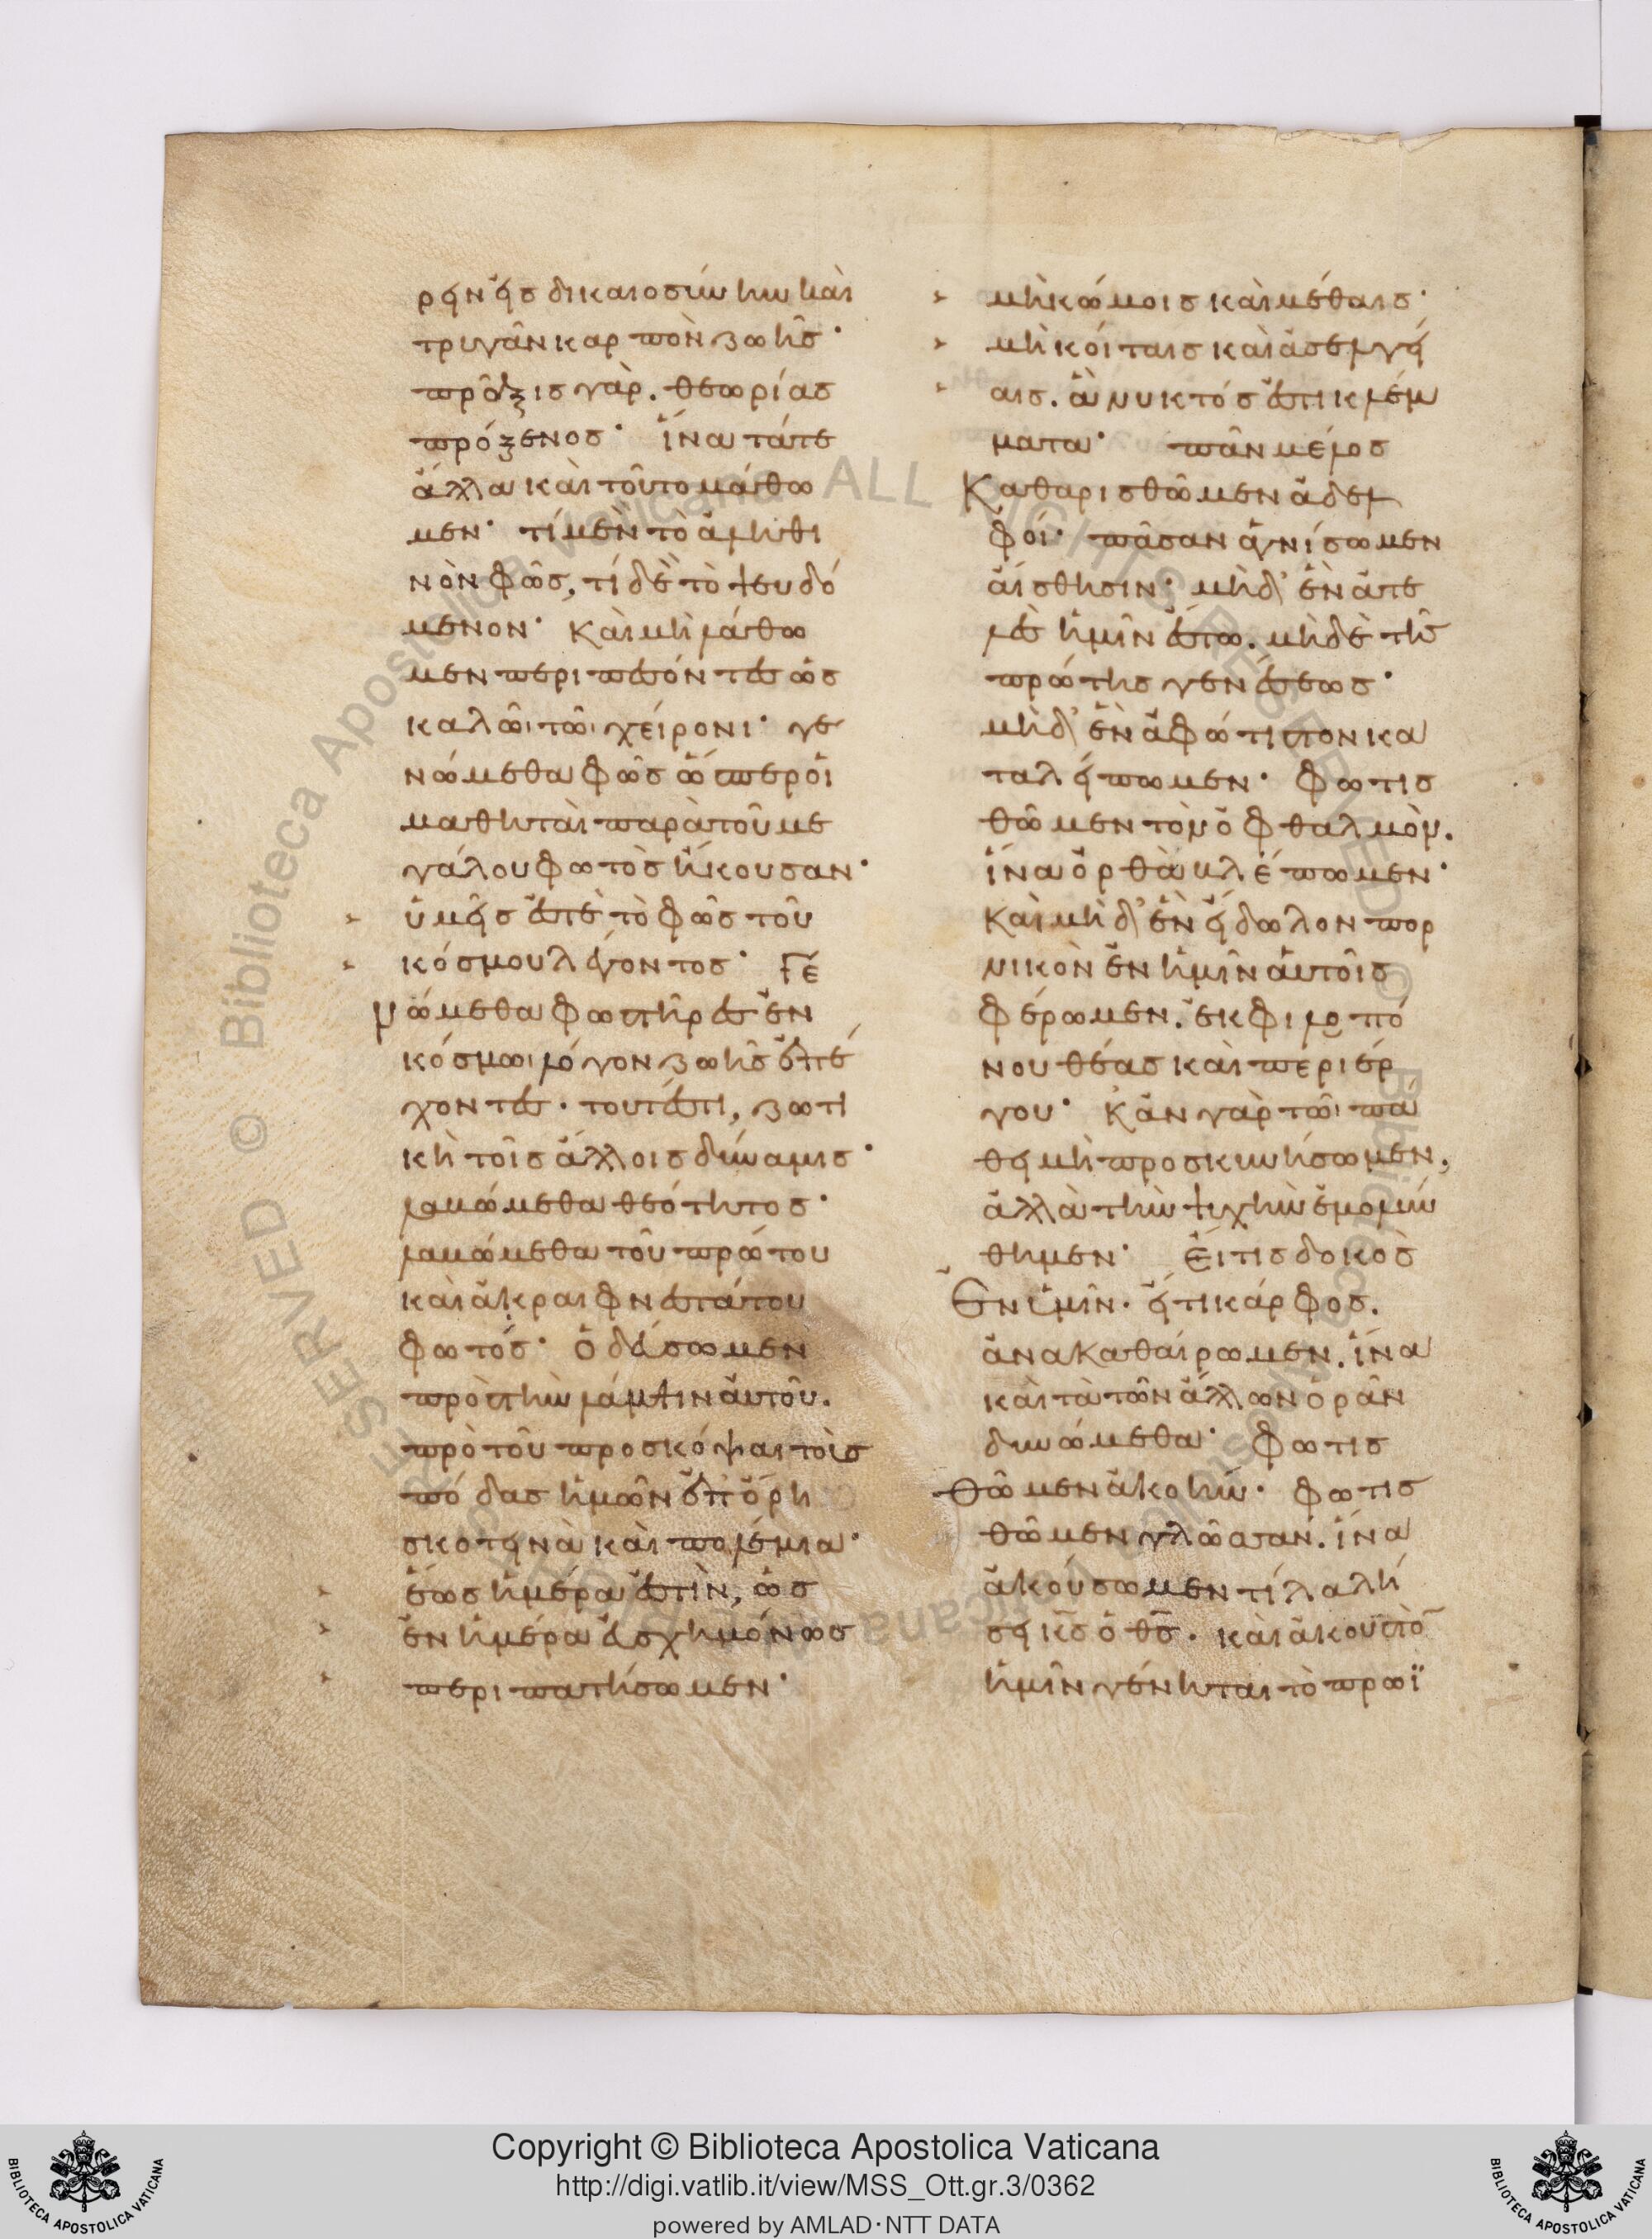 ρειν εἰς δικαιοσύνην καὶ
τρυγᾶν καρπὸν ζωῆς·
πρᾶξις γὰρ. θεωρίας
πρόξενος· ἵνα τά τε
ἄλλα καὶ τοῦτο μάθω
μεν· τί μὲν τὸ ἀληθι
νὸν φῶς, τί δὲ τὸ ψευδό
μενον· Καὶ μὴ λάθω
μεν περιπεσόντες ὡς
καλῶι τῶι χείρονι· γε
νώμεθα φῶς ὥσπερ οἱ
μαθηταὶ παρὰ τοῦ με
γάλου φωτὸς ἤκουσαν·
ὑμεῖς ἐστὲ τὸ φῶς τοῦ
κόσμου λέγοντος· Γε
νώμεθα φωστῆρες ἐν
κόσμωι λόγον ζωῆς ἐπέ
χοντες· τουτέστι, ζωτι
κὴ τοῖς ἄλλοις δύναμις·
λαβώμεθα θεότητος·
λαβώμεθα τοῦ πρώτου
καὶ ἀκραιφνεστάτου
φωτός· ὁδεύσωμεν
πρὸς τὴν λάμψιν αὐτοῦ.
πρὸ τοῦ προσκόψαι τοὺς
πόδας ἡμῶν ἐπ' ὄρη
σκοτεινὰ καὶ πολέμια·
ἕως ἡμέρα ἐστὶν, ὡς
ἐν ἡμέρα εὐσχημόνως
περιπατήσωμεν·
μὴ κώμοις καὶ μέθαις·
μὴ κοίταις καὶ ἀσελγεί
αις. ἃ νυκτός ἐστι κλέμ
ματα· πᾶν μέλος
Καθαρισθῶμεν ἀδελ
φοί· πᾶσαν ἁγνίσωμεν
αἴσθησιν· μηδ' ἓν ἀτε
λὲς ἡμῖν ἔστω. μὴ δὲ τῆς
πρώτης γενέσεως·
μηδ' ἓν ἀφώτιστον κα
ταλείπωμεν· φωτισ
θῶμεν τὸν ὀφθαλμὸν.
ἵνα ὀρθὰ βλέπωμεν·
Καὶ μηδ' ἓν εἴδωλον πορ
νικὸν ἐν ἡμῖν αὐτοῖς
φέρωμεν. ἐκ φιλοπό
νου θέας καὶ περιέρ
γου· Κἂν γὰρ τῶι πά
θει μὴ προσκυνήσωμεν,
ἀλλὰ τὴν ψυχὴν ἐμολύν
θημεν· Εἴ τις δοκὸς
Ἐν ἡμῖν· εἴ τι κάρφος.
ἀνακαθαίρωμεν. ἵνα
καὶ τὰ τῶν ἄλλων ὁρᾶν
δυνώμεθα· φωτισ
Θῶμεν ἀκοήν· φωτισ
θῶμεν γλῶσσαν. ἵνα
ἀκούσωμεν τί λαλή
σει κ̅ς̅ ὁ θ̅ς̅. καὶ ἀκουστὸ̅
ἡμῖν γένηται τὸ πρωῒ
Copyright © Biblioteca Apostolica Vaticana
http://digi.vatlib.it/view/MSS_Ott.gr.3/0362
powered by AMLAD·NTT DATA